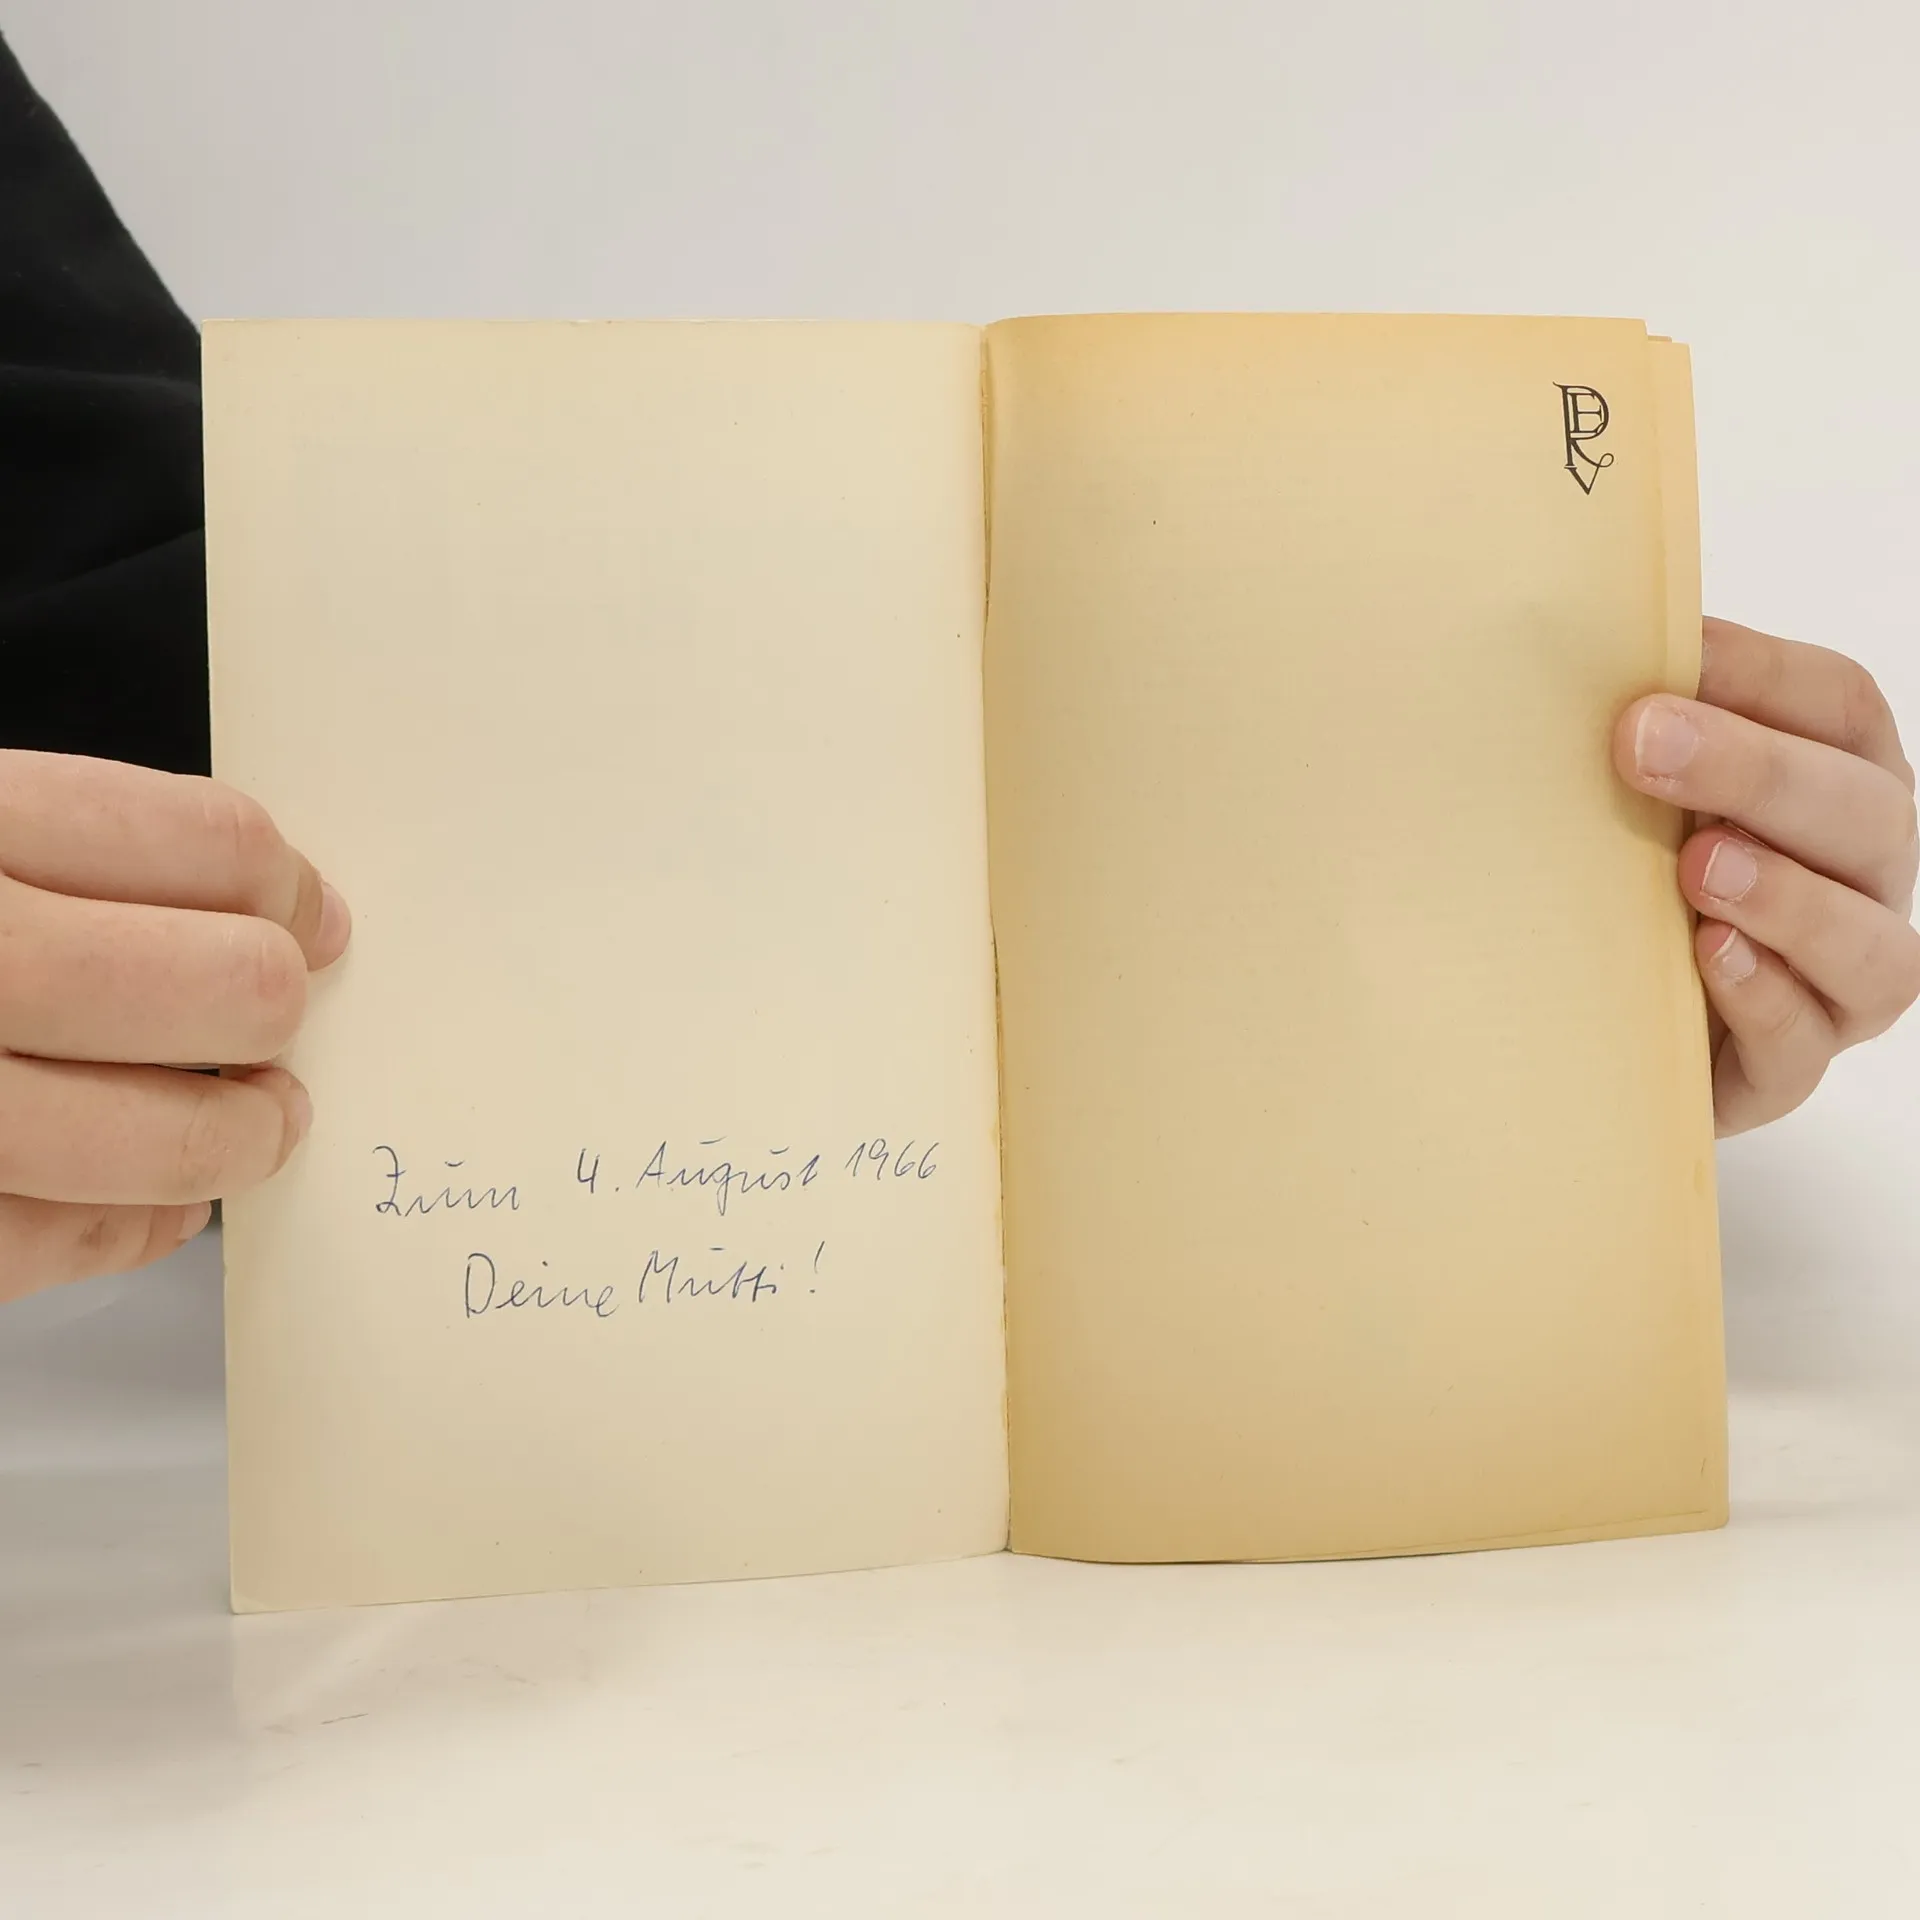 Zum 4. August 1966
Deine Mutti!